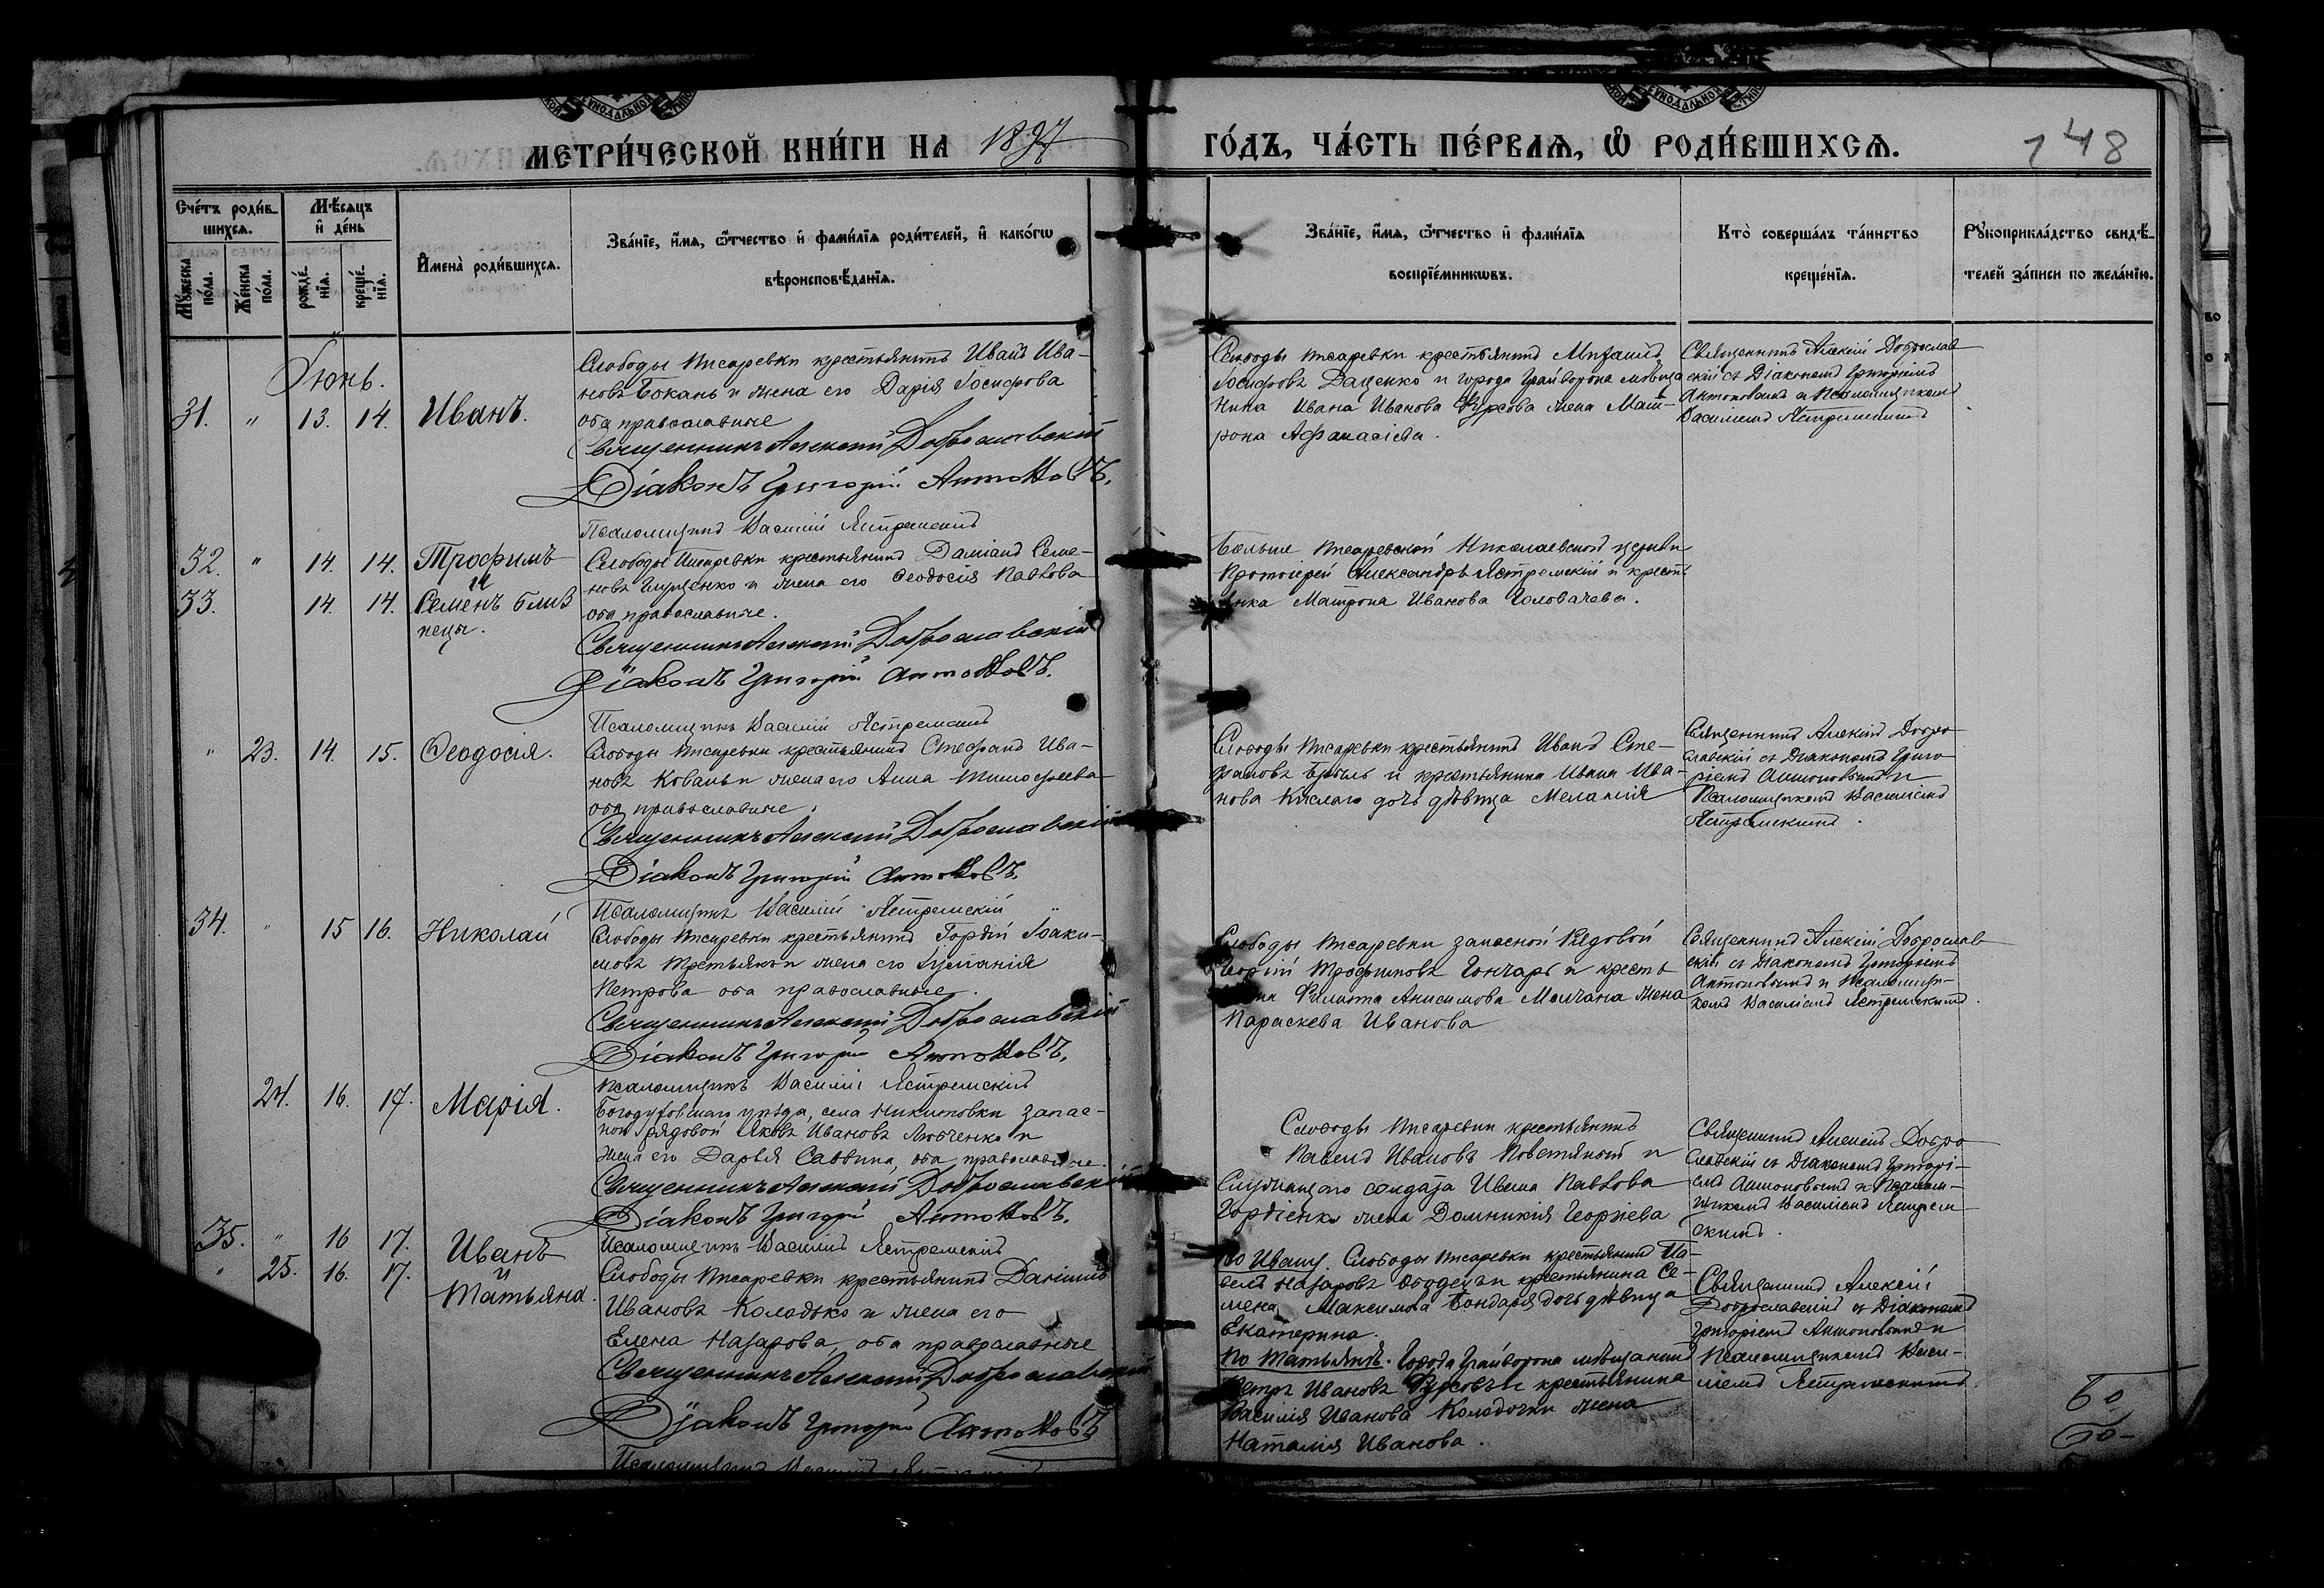 МЕТРИ́ЧЕСКОЙ КНИ́ГИ НА 1897
ГО́ДЪ, ЧА́СТЬ ПЕ́РВАѦ, Ѽ РОДИ́ВШИХСѦ.
148
Сче́тъ роди́в-
шихсѧ.
Мѣ́сѧцъ
и҆ де́нь
И҆мена̀ роди́вшихсѧ.
Зва́нїе, и҆́мѧ, ѻ҆́тчество и҆ фами́лїѧ роди́телей, и҆ како́гѡ
вѣроисповѣ́данїѧ.
Мꙋ́жеска
по́ла.
Же́нска
по́ла.
рожде́-
нїѧ.
креще́-
нїѧ.
Зва́нїе, и҆́мѧ, ѻ҆́тчество и҆ фами́лїѧ
воспрїе́мникѡвъ.
Кто̀ соверша́лъ та́инство
креще́нїѧ.
Рꙋкоприкла́дство свидѣ́-
телей за́писи по жела́нїю.
Іюнь.
31. " 13. 14. Иванъ.
Слободы Писаревки крестьянинъ Иванъ Ива-
новъ Бокань и жена его Дарія Іосифова
оба православные
Священникъ Алексій Доброславскій
Діаконъ Григорій Антоновъ.
Псаломщикъ Василій Ястремскій
Слободы Писаревки крестьянинъ Михаилъ
Іосифовъ Даценко и города Грайворона мѣща
нина Ивана Иванова Фурсова жена Мат-
рона Афанасіева.
Священникъ Алексій Доброслав
скій съ Діакономъ Григоріемъ
Антоновымъ и Псаломщикомъ
Василіемъ Ястремскимъ
32. " 14. 14. Трофимъ
и
33. 14. 14. Семенъ близ
нецы.
Слободы Писаревки крестьянинъ Даміанъ Семе-
новъ Гищенко и жена его Ѳеодосія Павлова
оба православные.
Священникъ Алексій Доброславскій
Діаконъ Григорій Антоновъ.
Псаломщикъ Василій Ястремскій
Больше Писаревской Николаевской церкви
Протоіерей Александръ Ястремскій и кресть
янка Матрона Иванова Головачева.
" 23. 14. 15. Ѳеодосія.
Слободы Писаревки крестьянинъ Стефанъ Ива-
новъ Коваль и жена его Анна Тимофеева
оба православные.
Священникъ Алексій Доброславскій
Діаконъ Григорій Антоновъ.
Псаломщикъ Василій Ястремскій
Слободы Писаревки крестьянинъ Иванъ Сте-
фановъ Бриль и крестьянина Ивана Ива-
нова Кислаго дочь дѣвица Меланія
Священникъ Алексій Добро
славскій съ Діакономъ Григо
ріемъ Антоновымъ и
Псаломщикомъ Василіемъ
Ястремскимъ.
34. " 15 16. Николай
Слободы Писаревки крестьянинъ Гордій Іоаки-
мовъ Третьякъ и жена его Іуліанія
Петрова оба православные.
Священникъ Алексій Доброславскій
Діаконъ Григорій Антоновъ.
Псаломщикъ Василій Ястремскій
Слободы Писаревки запасной Рядовой
Георгій Трофимовъ Гончаръ и кресть
Филиппа Анисимова Молчана жена
Параскева Иванова
Священникъ Алексій Доброслав
скій съ Діакономъ Григоріемъ
Антоновымъ и Псаломщи-
комъ Василіемъ Ястремскимъ.
24. 16. 17. Марія.
Богодуховскаго уѣзда, села Никитовки запас-
ной рядовой Яковъ Ивановъ Любченко и
жена его Дарья Саввина, оба православные.
Священникъ Алексій Доброславскій
Діаконъ Григорій Антоновъ.
Псаломщикъ Василій Ястремскій
Слободы Писаревки крестьянинъ
Павелъ Ивановъ и
Служащаго солдата Ивана Павлова
Гордіенко жена Домникія Георгіева
Священникъ Алексій Добро
славскій съ Діакономъ Григорі-
емъ Антоновымъ и Псалом-
щикомъ Василіемъ Ястрем-
скимъ.
35. " 16 17. Иванъ
и
" 25. 16. 17. Татьяна.
Слободы Писаревки крестьянинъ Даніилъ
Ивановъ Колодько и жена его
Елена Назарова, оба православные
Священникъ Алексій Доброславскій
Діаконъ Григорій Антоновъ
Псаломщикъ Василій Ястремскій
По Ивану. Слободы Писаревки крестьянинъ Па-
велъ Назаровъ и крестьянина Се-
мена Максимова Бондаря дочь дѣвица
Екатерина.
По Татьянѣ. Города Грайворона мѣщанинъ
Петръ Ивановъ Фурсовъ и крестьянина
Василія Иванова Колодочки жена
Наталія Иванова.
Священникъ Алексій
Доброславскій съ Діакономъ
Григоріемъ Антоновымъ и
Псаломщикомъ Васи-
ліемъ Ястремскимъ